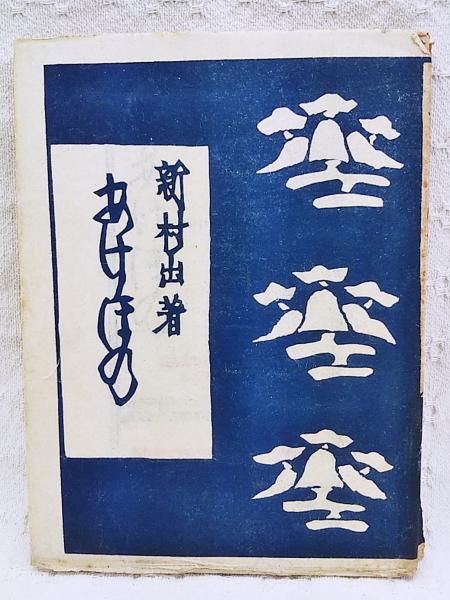 新村出著
あけほの